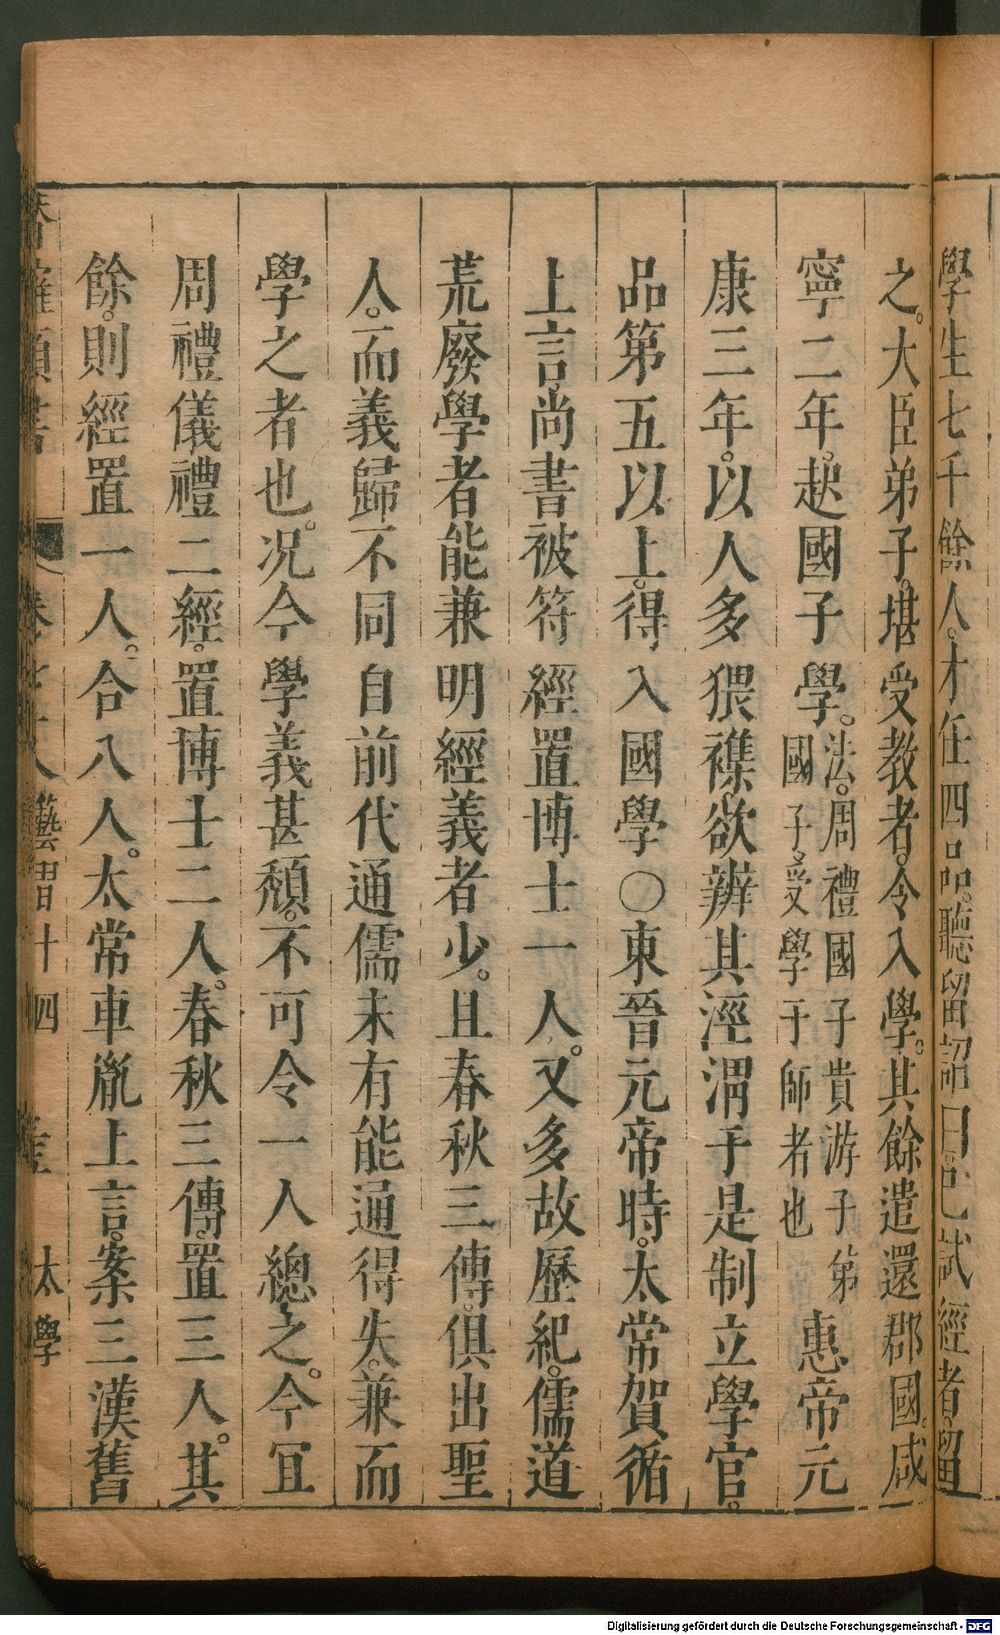 學生七千餘人。才任四品。聽留。詔曰已試經者。留
之。大臣弟子。堪受教者。令入學。其餘遣還郡國。咸
寧二年。起國子學。法。周禮國子貴游子弟國子受學于師者也惠帝元
康三年。以人多猥襍。欲辨其涇渭。于是制立學官。
品第五以上。得入國學〇東晉元帝時。太常賀循
上言。尚書被符經置博士一人。又多故歷紀。儒道
荒廢學者能兼明經義者少。且春秋三傳。俱出聖
人。而義歸不同自前代通儒未有能通得失。兼而
學之者也。况今學義甚頹。不可令一人總之。今冝
周禮儀禮二經。置博士二人。春秋三傳。置三人。其
餘。則經置一人。合八人。太常車胤上言。案二漢舊
卷 藝習十四 太學
Digitalisierung gefördert durch die Deutsche Forschungsgemeinschaft - DFG